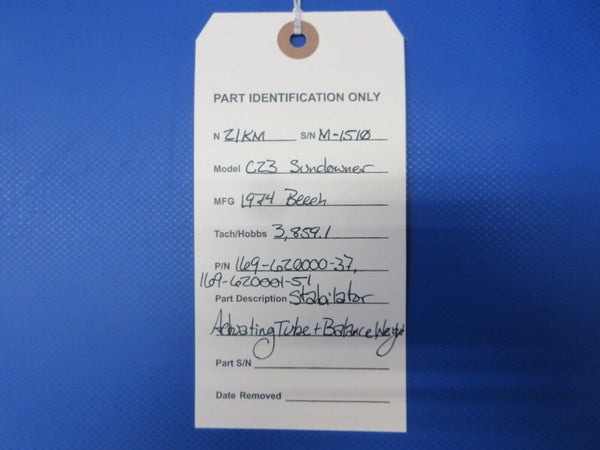 PART IDENTIFICATION ONLY
N 21KM S/N M-1510
Model C23 Sundowner
MFG 1974 Beech
Tach/Hobbs 3,859.1
P/N 169-620000-37,
169-620001-51
Part Description Stabilator
Actuating Tube + Balance Weight
Part S/N
Date Removed